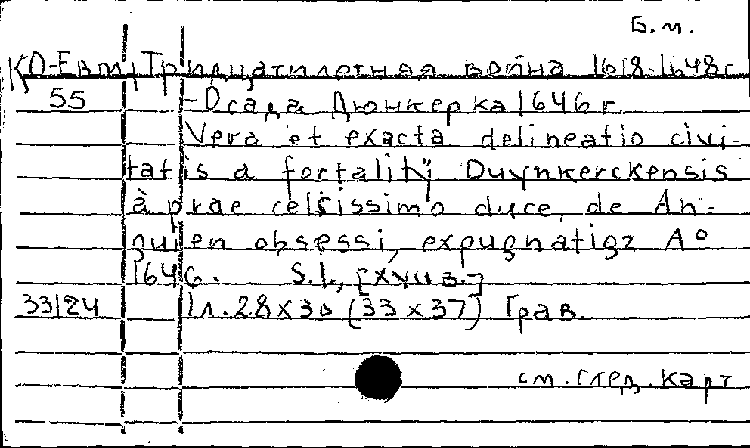 Б.м.
КО-Евт, Тридцатилетняя война 1618-1648 г
55 -Осада Дюнкерка 1646 г
Vera et exacta delineatio civi-
tatis a fortalitÿ Duynkerckensis
à prae celsissimo duce de An-
guien obsessi, expugnatiqz Aº
1646. S.l., [XVII в.]
33124 1 л. 28х36 (33 х 37) Грав.
см. след. карт